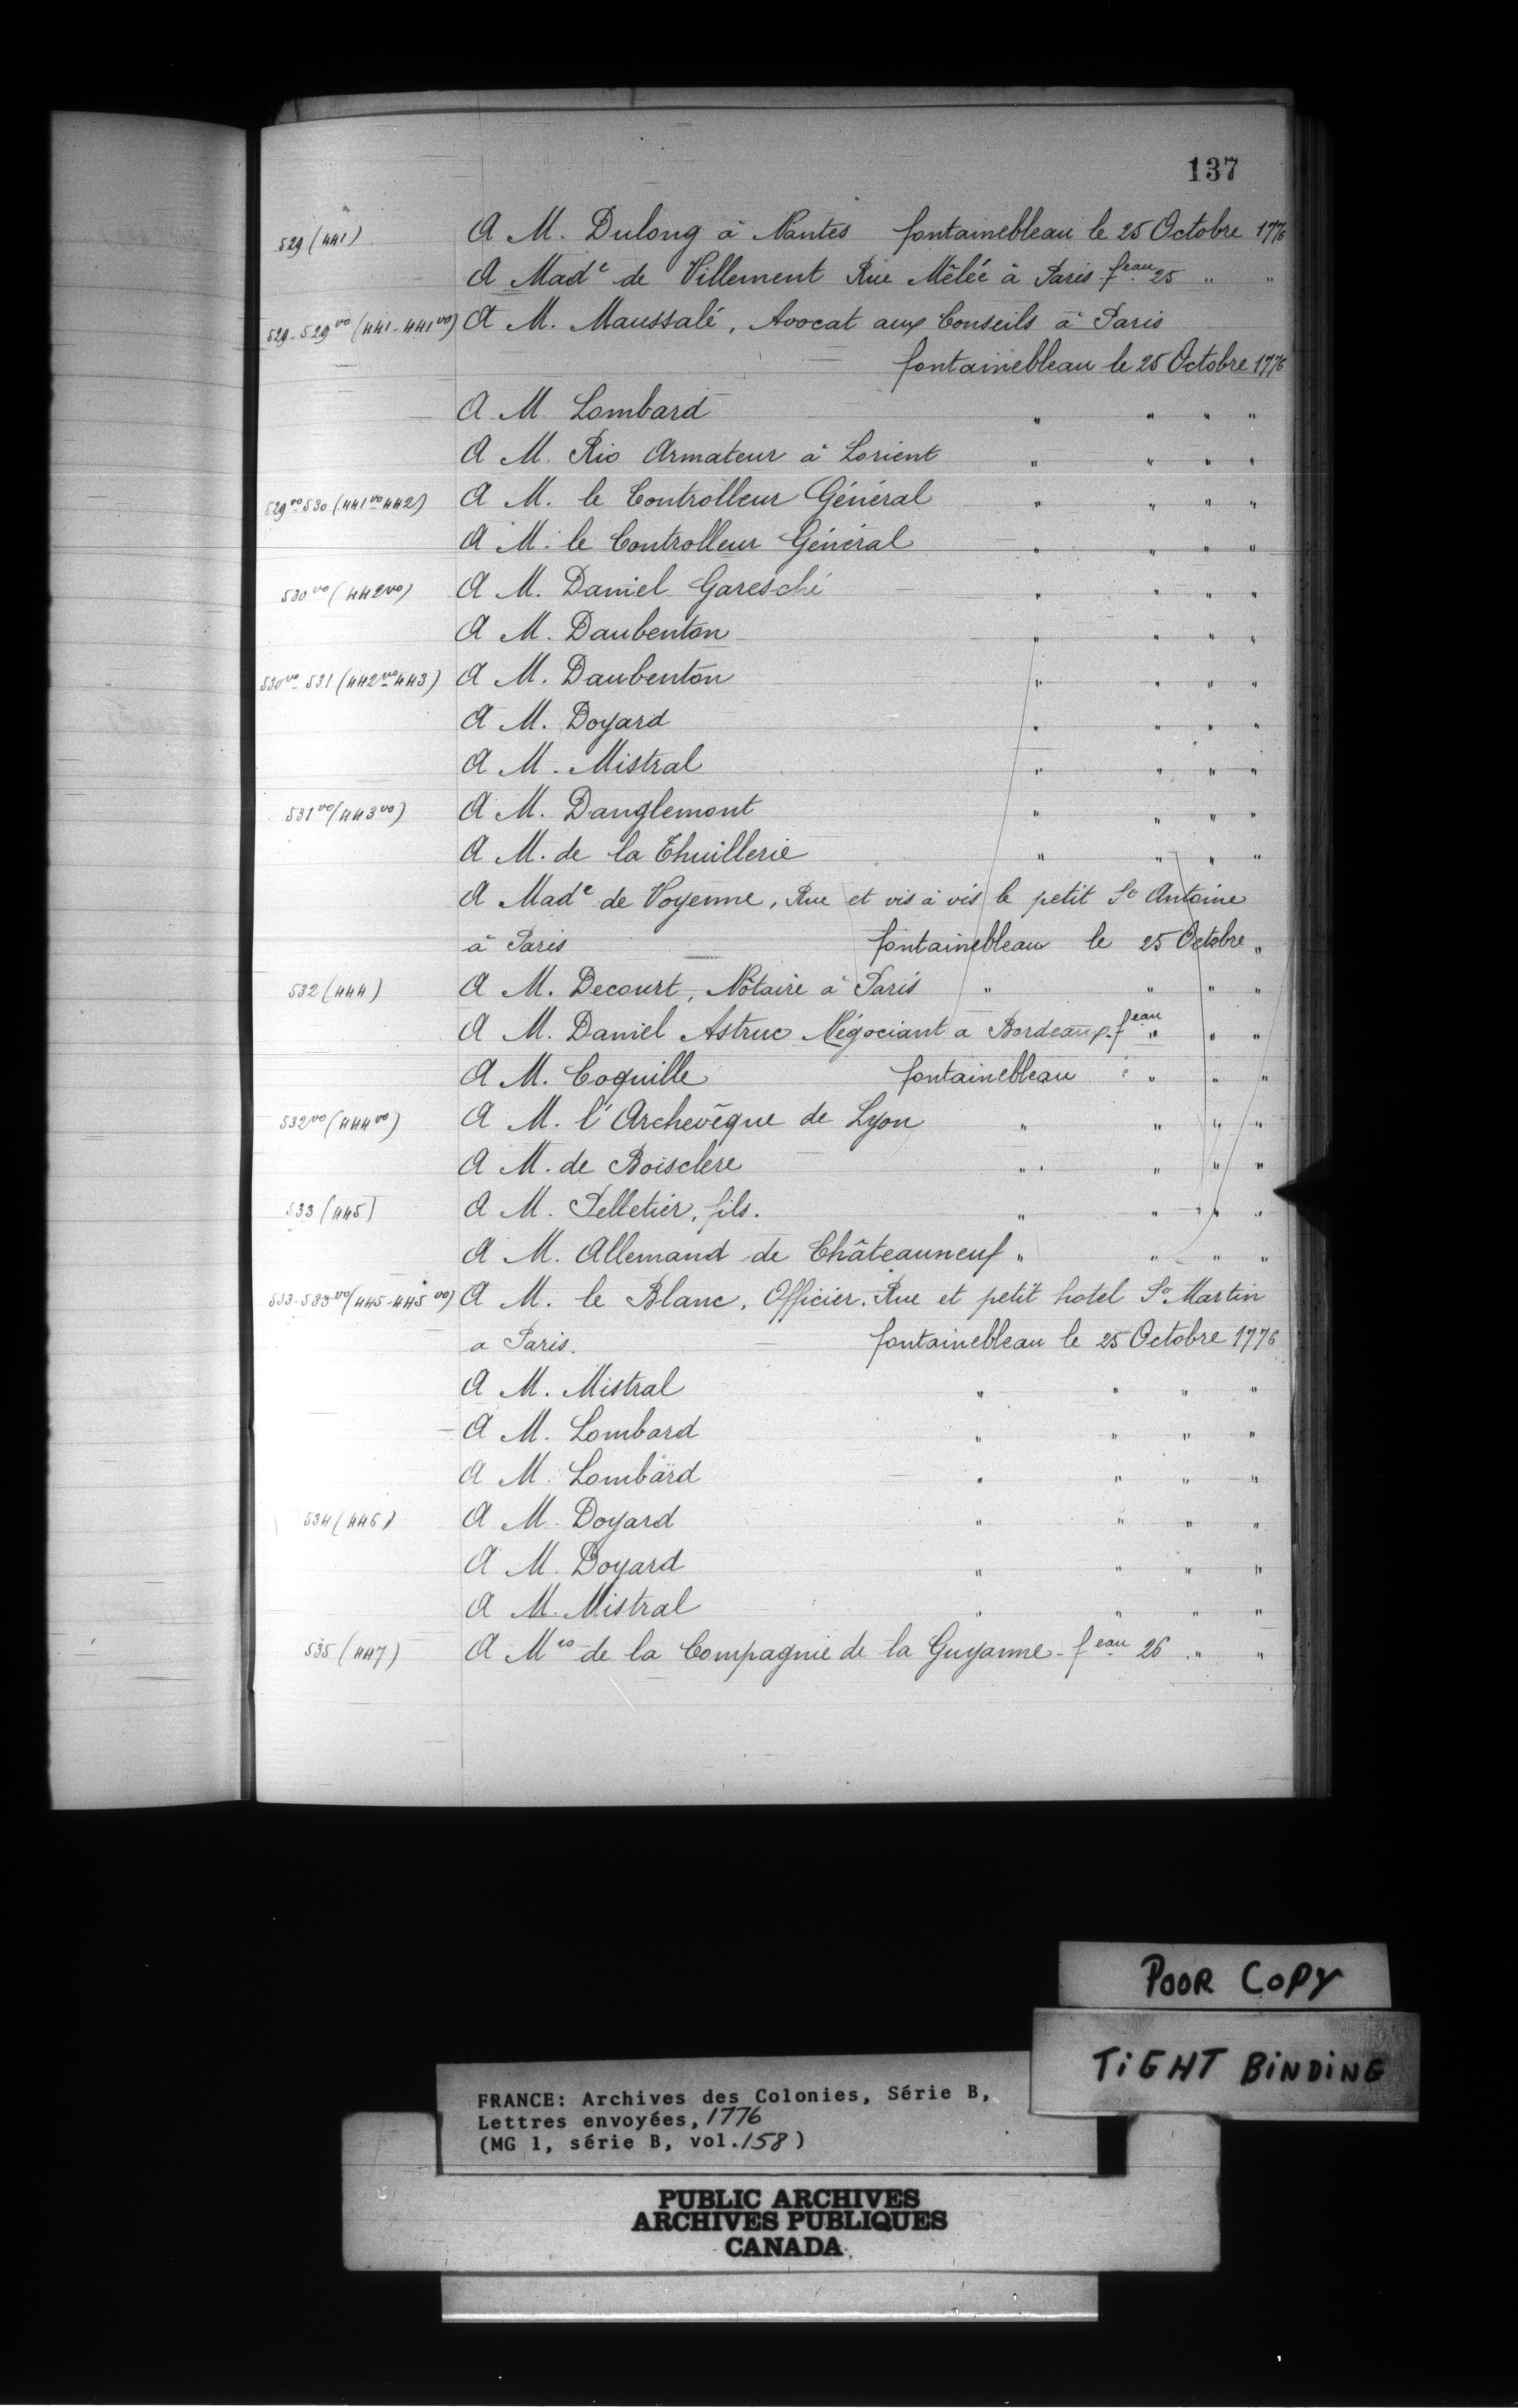 137
529 (441) A M. Dulong à Nantes fontainebleau le 25 Octobre 1776
A Made de Villement Rue Mêlée à Paris feau 25 " "
529-529vo (441-441vo) A M. Maussalé, Avocat aux Conseils à Paris
fontainebleau le 25 Octobre 1776
A M. Lombard " " " "
A M. Rio Armateur à Lorient " " " "
529vo-530 (441vo-442) A M. le Controlleur Général " " " "
A M. le Controlleur Général " " " "
530vo (442vo) A M. Daniel Garesché " " " "
A M. Daubenton " " " "
530vo-531 (442vo-443) A M. Daubenton " " " "
A M. Doyard " " " "
A M. Mistral " " " "
531vo (443vo) A M. Danglemont " " " "
A M. de la Thuillerie " " " "
A Made de Voyenne, Rue et vis à vis le petit St Antoine
à Paris fontainebleau le 25 Octobre "
532 (444) A M. Decourt, Nôtaire à Paris " " " "
A M. Daniel Astruc Négociant a Bordeaux feau " " "
A M. Coquille fontainebleau " " "
532vo (444vo) A M. l'Archevêque de Lyon " " " "
A M. de Boisclere " " " "
533 (445) A M. Pelletier, fils. " " " "
A M. Allemand de Châteauneuf " " " "
533-533vo (445-445vo) A M. le Blanc, Officier, Rue et petit hotel St Martin
a Paris. fontainebleau le 25 Octobre 1776
A M. Mistral " " " "
A M. Lombard " " " "
A M. Lombard " " " "
534 (446) A M. Doyard " " " "
A M. Doyard " " " "
A M. Mistral " " " "
535 (447) A Mrs de la Compagnie de la Guyanne feau 26 " "
POOR COPY
TIGHT BINDING
FRANCE: Archives des Colonies, Série B,
Lettres envoyées, 1776
(MG 1, série B, vol. 158)
PUBLIC ARCHIVES
ARCHIVES PUBLIQUES
CANADA